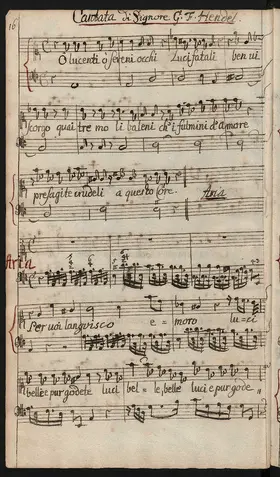 16
Cantata di Signore G. F. Hendel.
O lucenti o sereni occhi Luci fatali ben vi
scorgo quai tremoli baleni che i fulmini d'amore
presagite crudeli a questo core. Aria
Aria
Per voi languisco e - moro lu = ci
belle e pur godete luci bel = le, belle luci e pur gode =